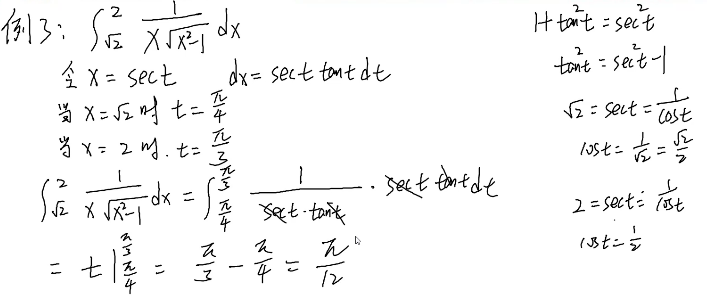 例3: ∫_{√2}^{2} 1/(x√(x²-1)) dx
令 x = sect dx = sect tant dt
当 x=√2 时 t = π/4
当 x = 2 时. t = π/3
∫_{√2}^{2} 1/(x√(x²-1)) dx = ∫_{π/4}^{π/3} 1/(sect·tant) · sect tant dt
= t|_{π/4}^{π/3} = π/3 - π/4 = π/12
1+tan²t = sec²t
tan²t = sec²t-1
√2 = sect = 1/cost
cost = 1/√2 = √2/2
2 = sect = 1/cost
cost = 1/2